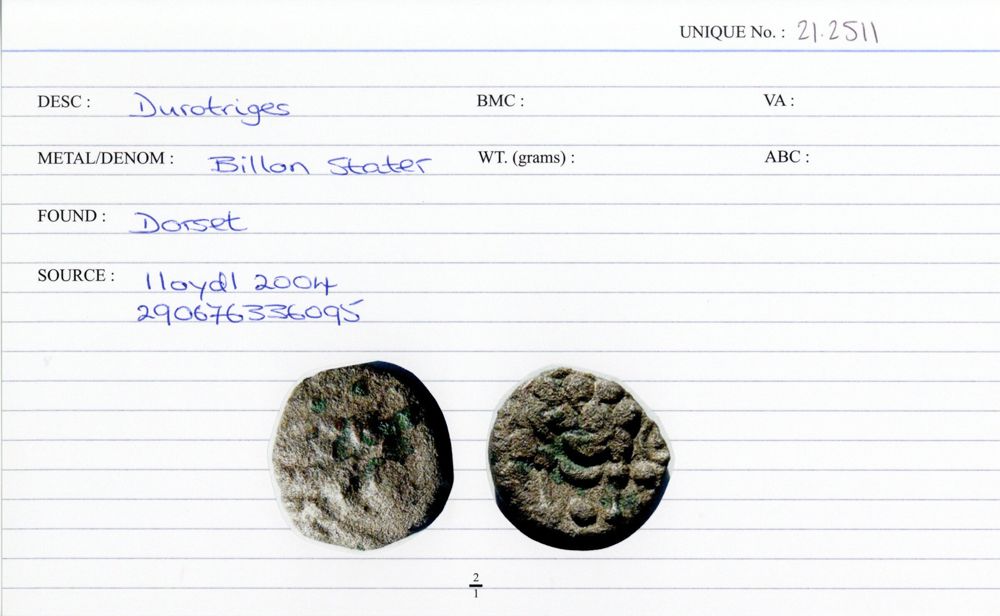 UNIQUE No. : 21.2511
DESC : Durotriges BMC : VA :
METAL/DENOM : Billon Stater WT. (grams) : ABC :
FOUND : Dorset
SOURCE : lloydl 2004
290676336095
2
1